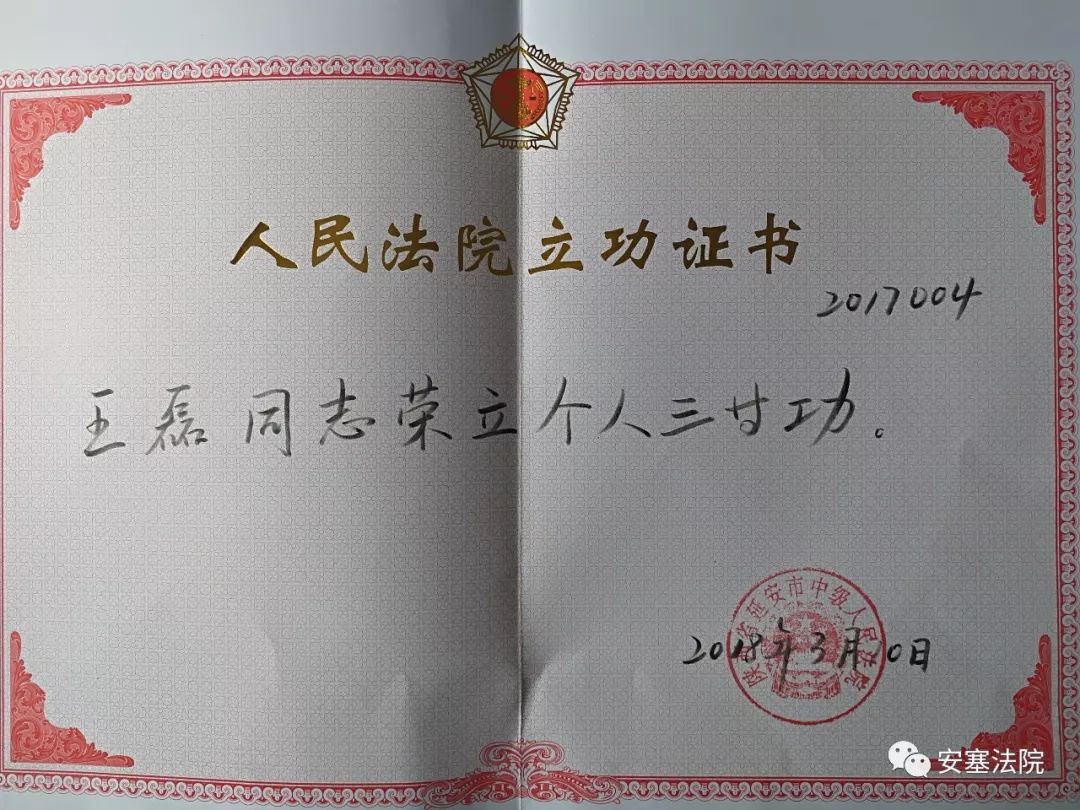 人民法院立功证书
2017004
王磊同志荣立个人三等功。
陕西省延安市中级人民法院
2018年3月10日
安塞法院